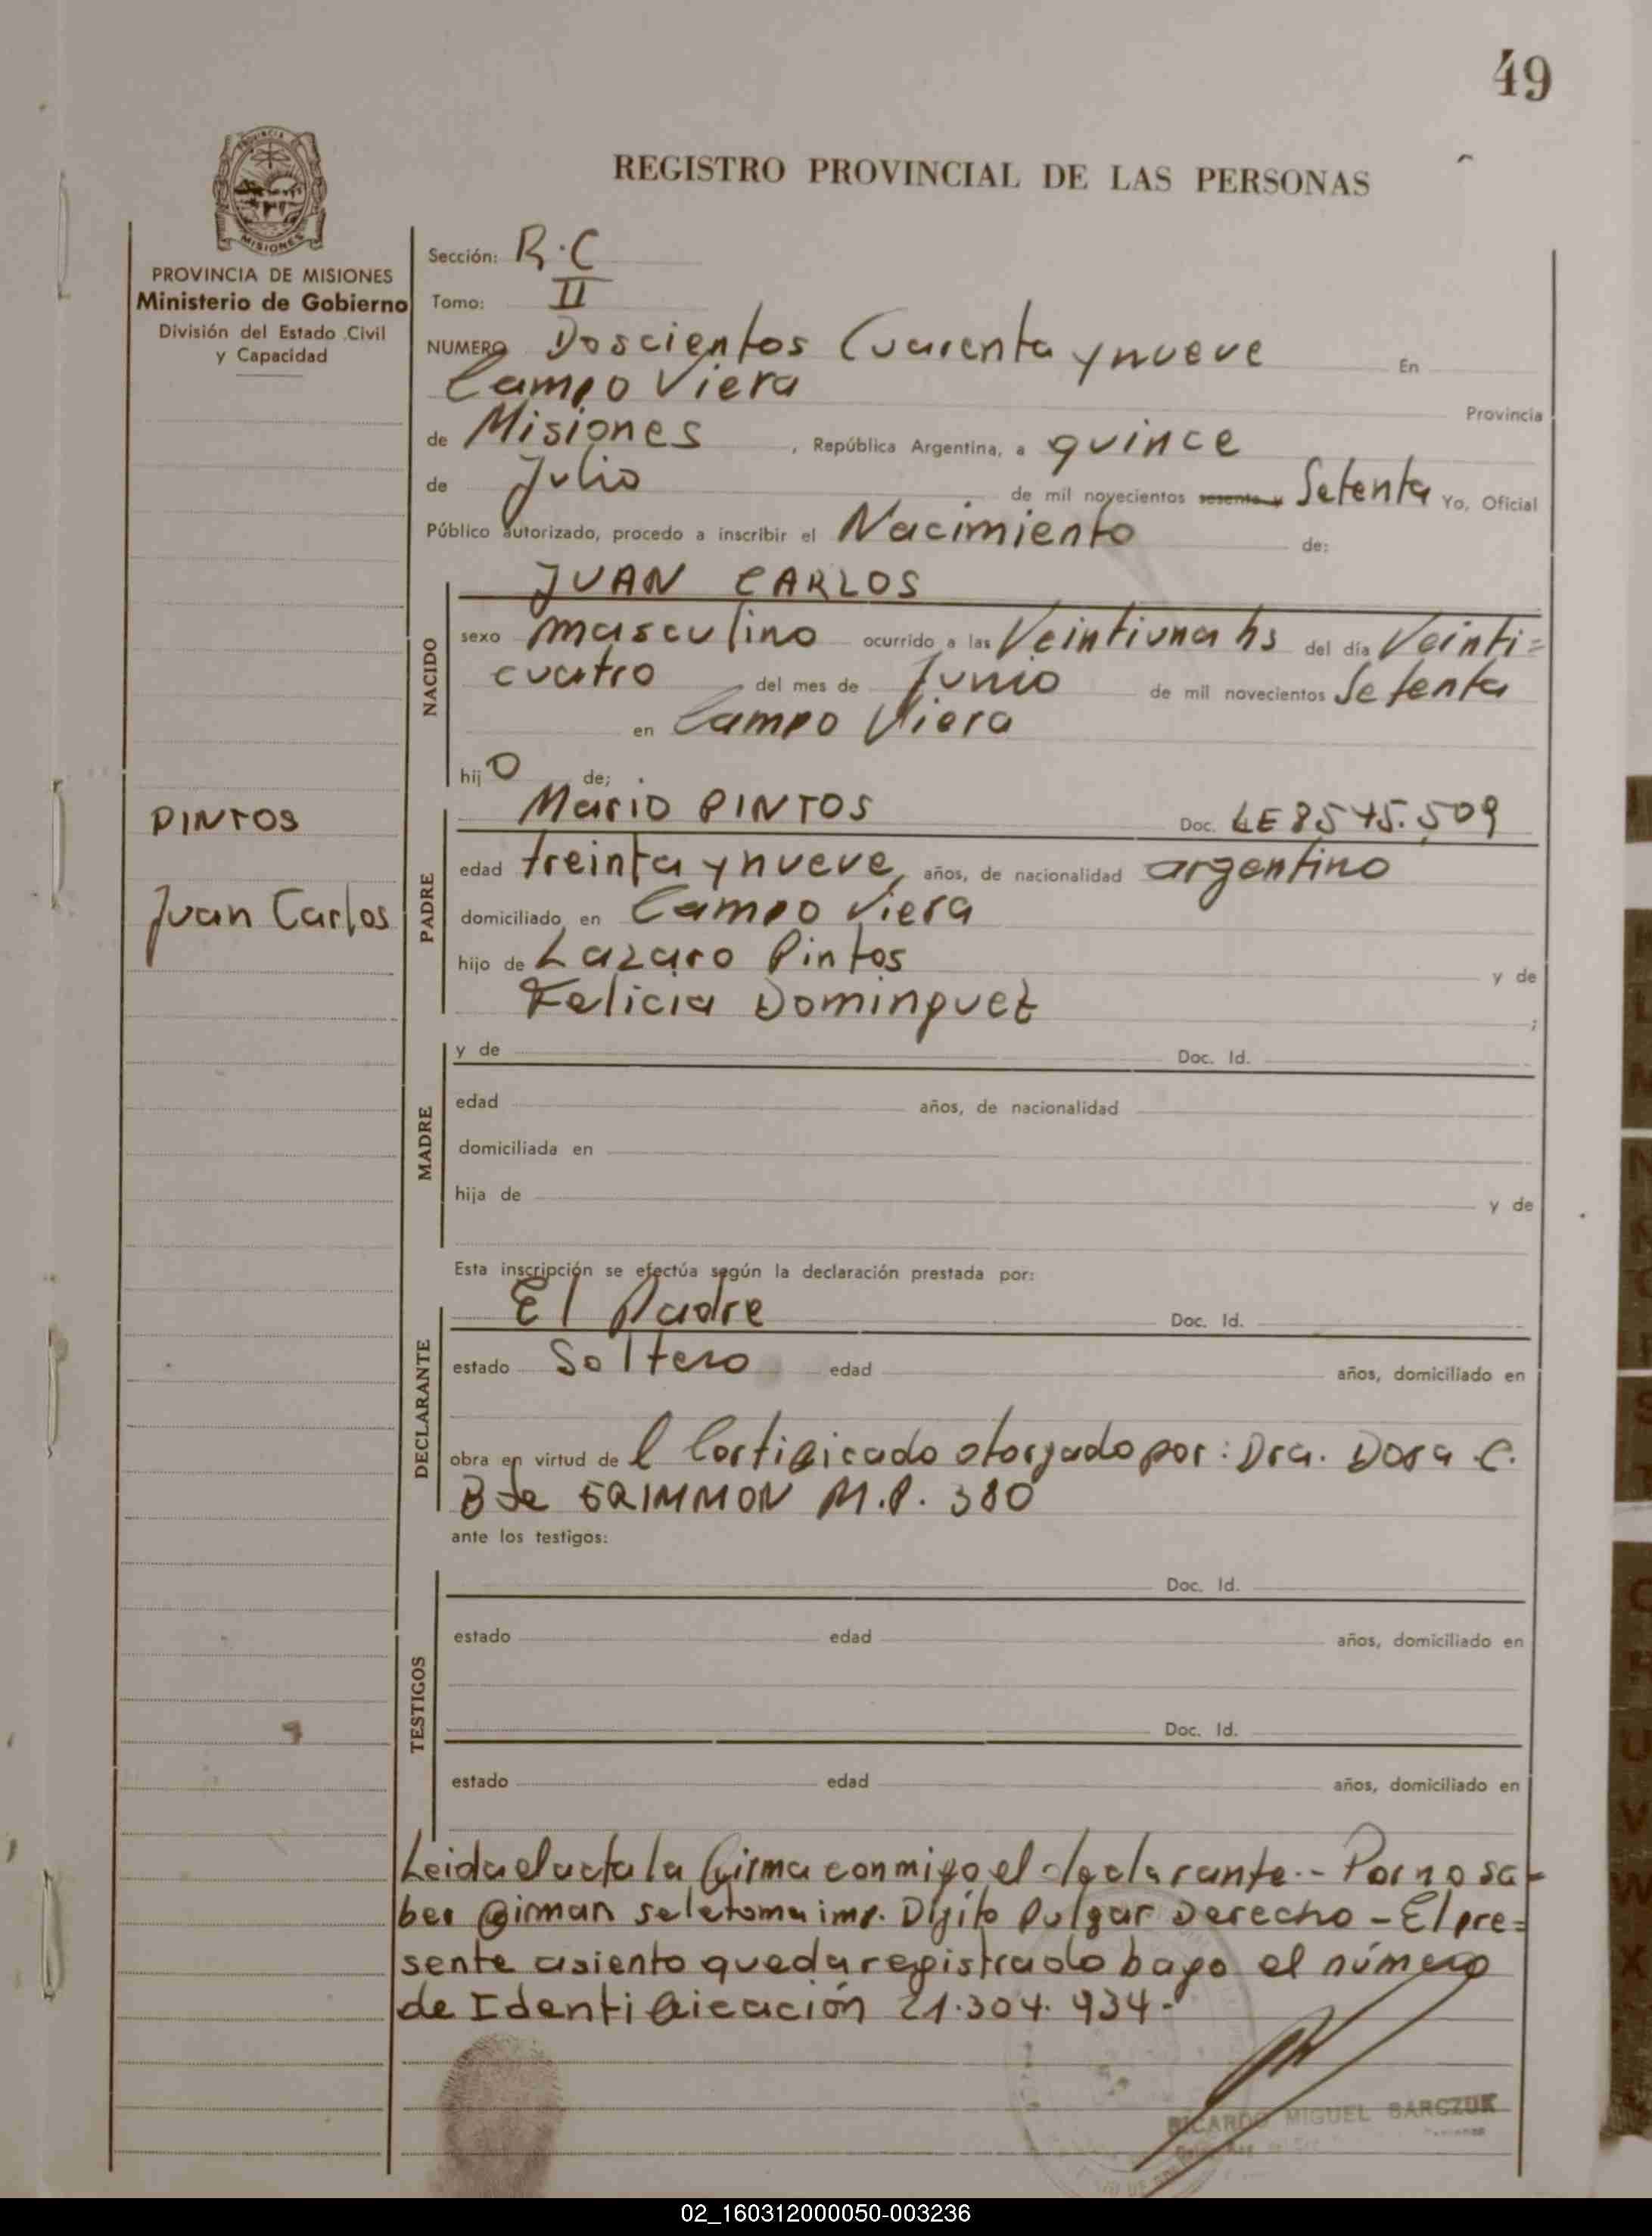 49
REGISTRO PROVINCIAL DE LAS PERSONAS
PROVINCIA
MISIONES
PROVINCIA DE MISIONES
Ministerio de Gobierno
División del Estado Civil
y Capacidad
Sección: R.C
Tomo: II
NUMERO Doscientos Cuarenta y nueve En
Campo Viera Provincia
de Misiones, República Argentina, a quince
de Julio de mil novecientos sesenta y Setenta Yo, Oficial
Público autorizado, procedo a inscribir el Nacimiento de:
JUAN CARLOS
NACIDO
sexo masculino ocurrido a las Veintiuna hs del día Veinti=
cuatro del mes de Junio de mil novecientos Setenta
en Campo Viera
hijo de;
PINTOS
Juan Carlos
PADRE
Mario PINTOS Doc. LE 8545.509
edad treinta y nueve, años, de nacionalidad argentino
domiciliado en Campo Viera
hijo de Lazaro Pintos y de
Felicia Dominguez ;
MADRE
y de Doc. Id.
edad años, de nacionalidad
domiciliada en
hija de y de
Esta inscripción se efectúa según la declaración prestada por:
DECLARANTE
El Padre Doc. Id.
estado Soltero edad años, domiciliado en
obra en virtud de l Certificado otorgado por: Dra. Dora C.
B de GRIMMON M.P. 380
ante los testigos:
TESTIGOS
Doc. Id.
estado edad años, domiciliado en
Doc. Id.
estado edad años, domiciliado en
Leida el acta la firma conmigo el declarante.- Por no sa-
ber firmar se le toma imp. Digito Pulgar Derecho - El pre=
sente asiento queda registrado bayo el número
de Identificación 21.304.934.-
RICARDO MIGUEL BARCZUK
02_160312000050-003236